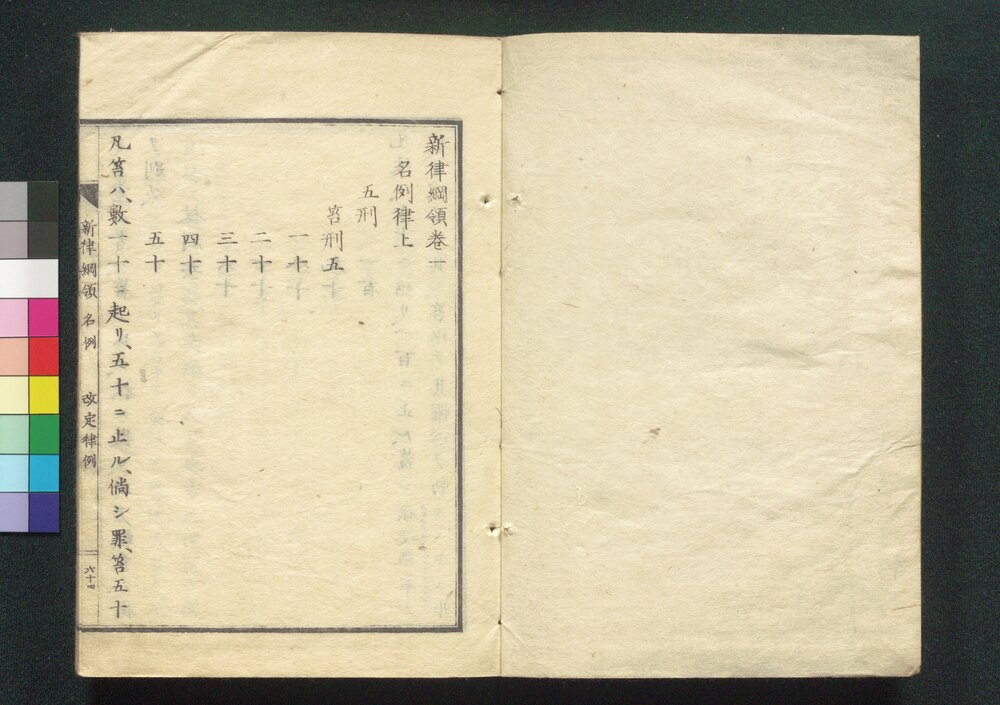 新律綱領卷一
名例律上
五刑
笞刑五
一十
二十
三十
四十
五十
凡笞ハ、數一十ニ起リ、五十ニ止ル、倘シ罪、笞五十
新律綱領 名例 改定律例 六十四